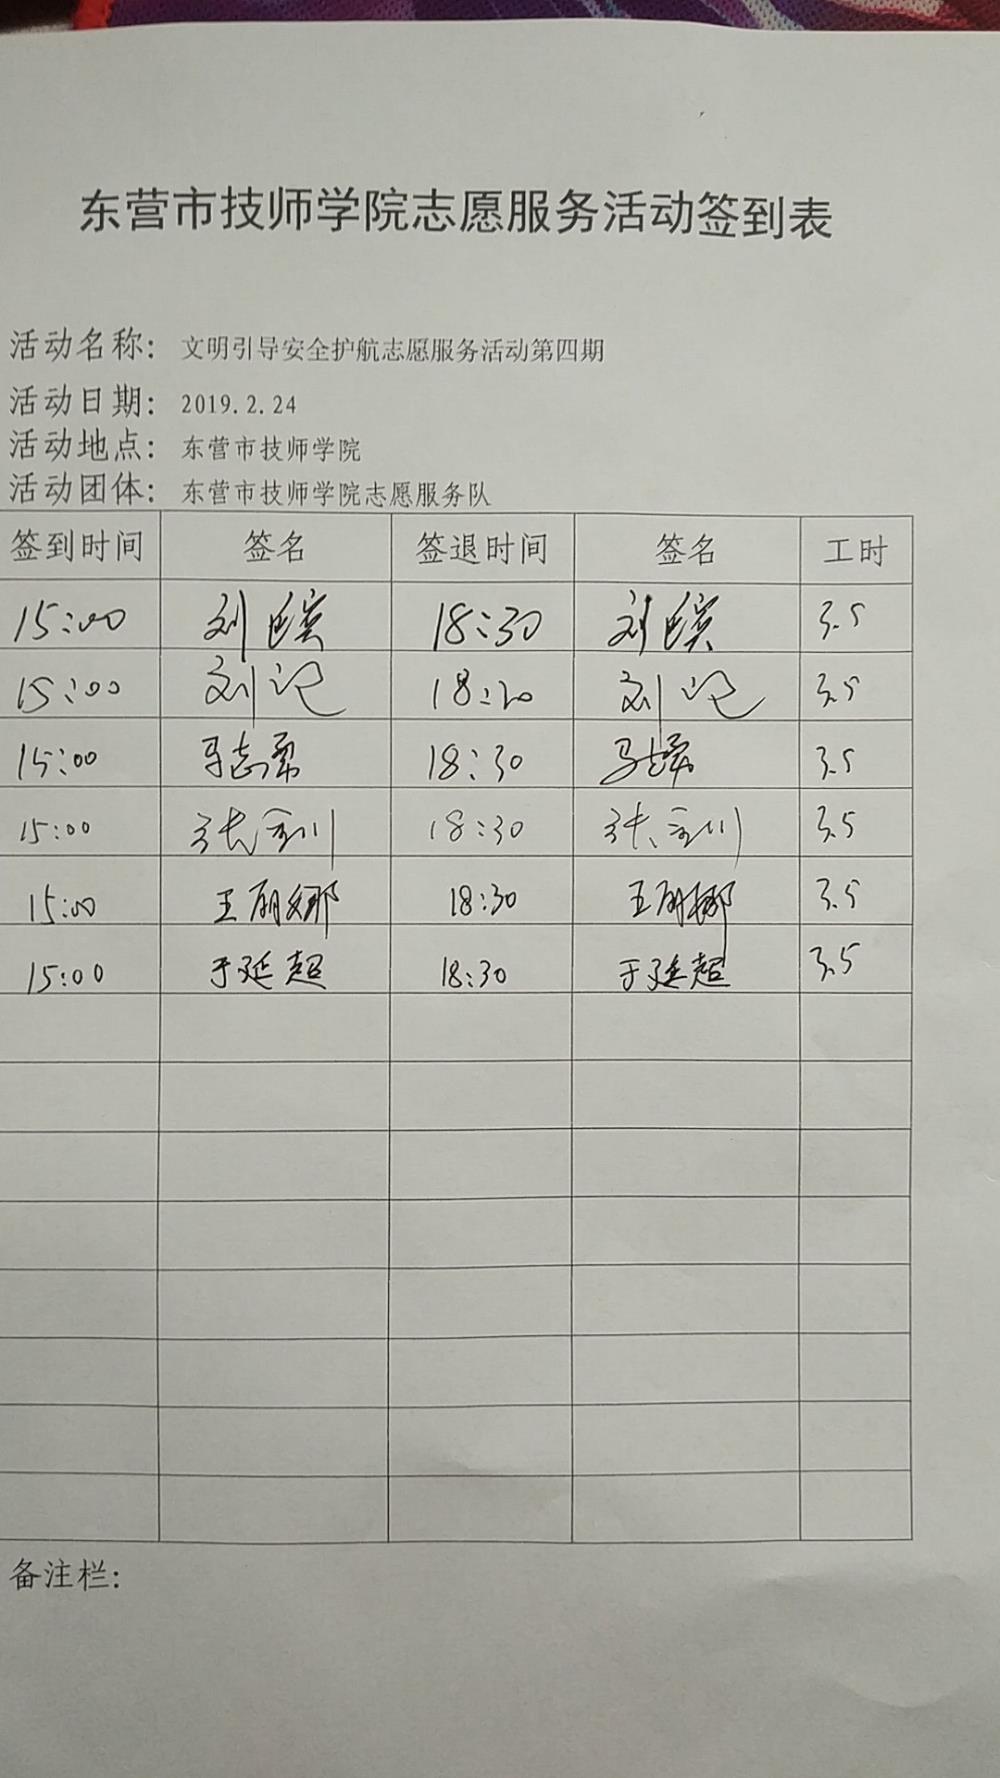 东营市技师学院志愿服务活动签到表
活动名称： 文明引导安全护航志愿服务活动第四期
活动日期： 2019.2.24
活动地点： 东营市技师学院
活动团体： 东营市技师学院志愿服务队
签到时间 签名 签退时间 签名 工时
15:00 刘 18:30 刘 3.5
15:00 刘 18:20 刘 3.5
15:00 马志勇 18:30 马志勇 3.5
15:00 张金川 18:30 张金川 3.5
15:00 王丽娜 18:30 王丽娜 3.5
15:00 于延超 18:30 于延超 3.5
备注栏：